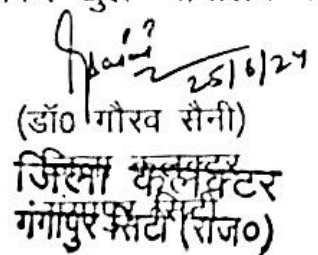 25/6/24
(डॉ० गौरव सैनी)
जिला कलक्टर
गंगापुर सिटी (राज०)